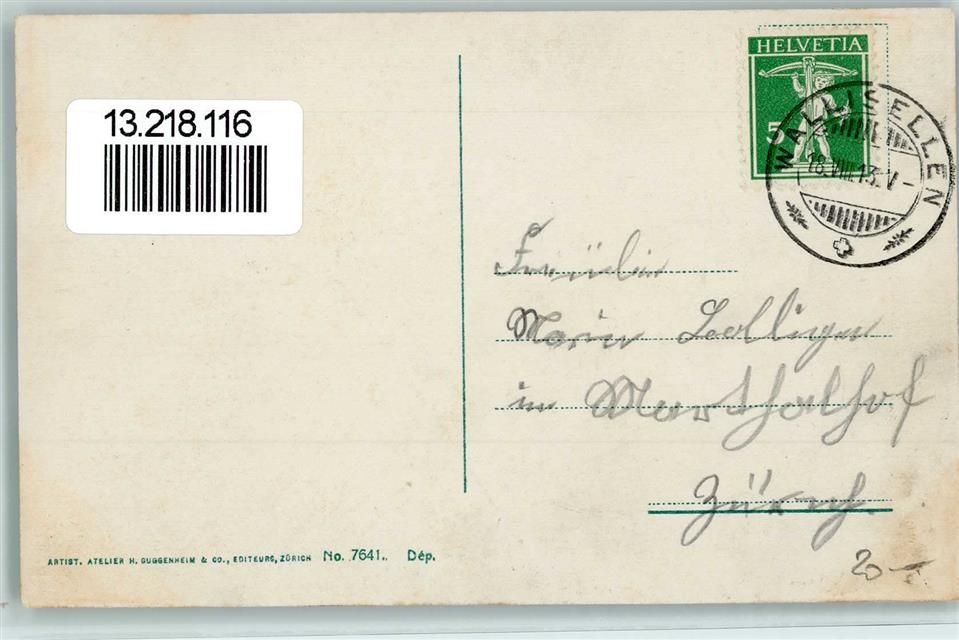 13.218.116
HELVETIA
5
WALLISELLEN
18.VIII.13.V-
Fräulein
Marie Bolliger
in Marthahof
Zürich.
ARTIST. ATELIER H. GUGGENHEIM & CO., EDITEURS, ZÜRICH No. 7641. Dép.
20-